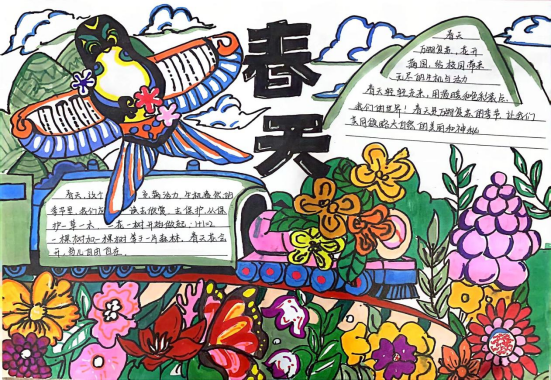 春天
春天
万物复苏，花开
满园，给校园带来
无尽的生机与活力
春天轻轻走来，用温暖和色彩装点
我们的世界！春天是万物复苏的季节，让我们
一起领略大自然的美丽和神秘
春天，这个充满活力，生机盎然的
季节里，我们一起去欣赏，去保护，从保
护一草一木、一花一树开始做起，1+1=2
一棵树加一棵树等于一片森林。春天花会
开，鸟儿自由自在。